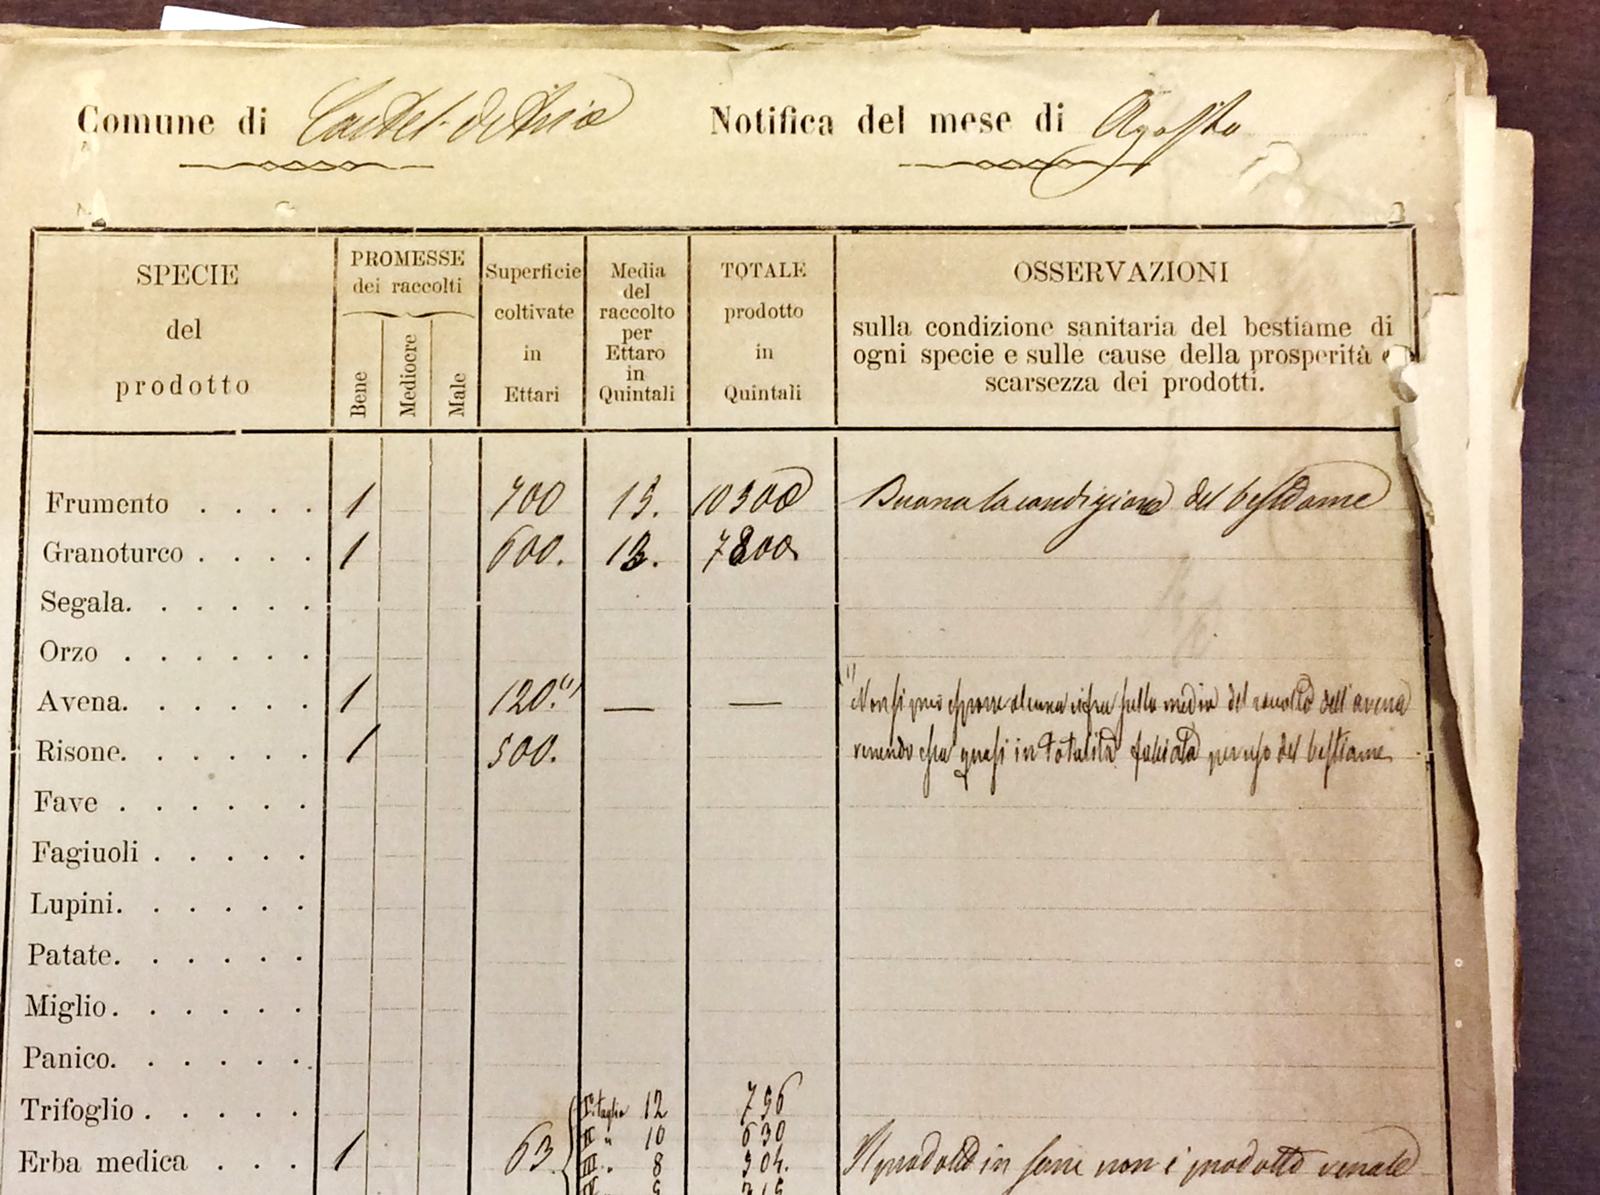 Comune di Castel d'Ario Notifica del mese di Agosto
SPECIE
del
prodotto
PROMESSE
dei raccolti
Bene
Mediocre
Male
Superficie
coltivate
in
Ettari
Media
del
raccolto
per
Ettaro
in
Quintali
TOTALE
prodotto
in
Quintali
OSSERVAZIONI
sulla condizione sanitaria del bestiame di
ogni specie e sulle cause della prosperità e
scarsezza dei prodotti.
Frumento . . . . 1 700 15. 10500 Buona la condizione del bestiame
Granoturco . . . . 1 600. 13. 7800.
Segala. . . . . .
Orzo . . . . . .
Avena. . . . . . 1 120.(1) — — (1) Non si può esporre alcuna cifra sulla media del raccolto dell'avena
Risone. . . . . . 1 500. venendo essa quasi in totalità falciata per uso del bestiame
Fave . . . . . .
Fagiuoli . . . . .
Lupini. . . . . .
Patate. . . . . .
Miglio. . . . . .
Panico. . . . . .
Trifoglio . . . . . I° taglio 12 756
II " 10 630
Erba medica . . . 1 63. III " 8 504. Il prodotto in seme non è prodotto venale